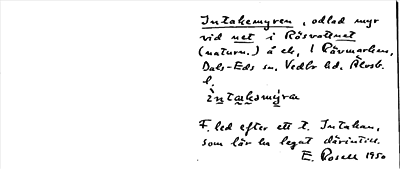 Intakemyren, odlad myr
vid net i Råsvattnet
(naturn.) å ek. l Rävmarken,
Dals-Eds sn. Vedbo hd. Älvsb.
l.
intakemýra
F. led efter ett t. Intakan,
som lär ha legat därintill.
E. Rosell 1950